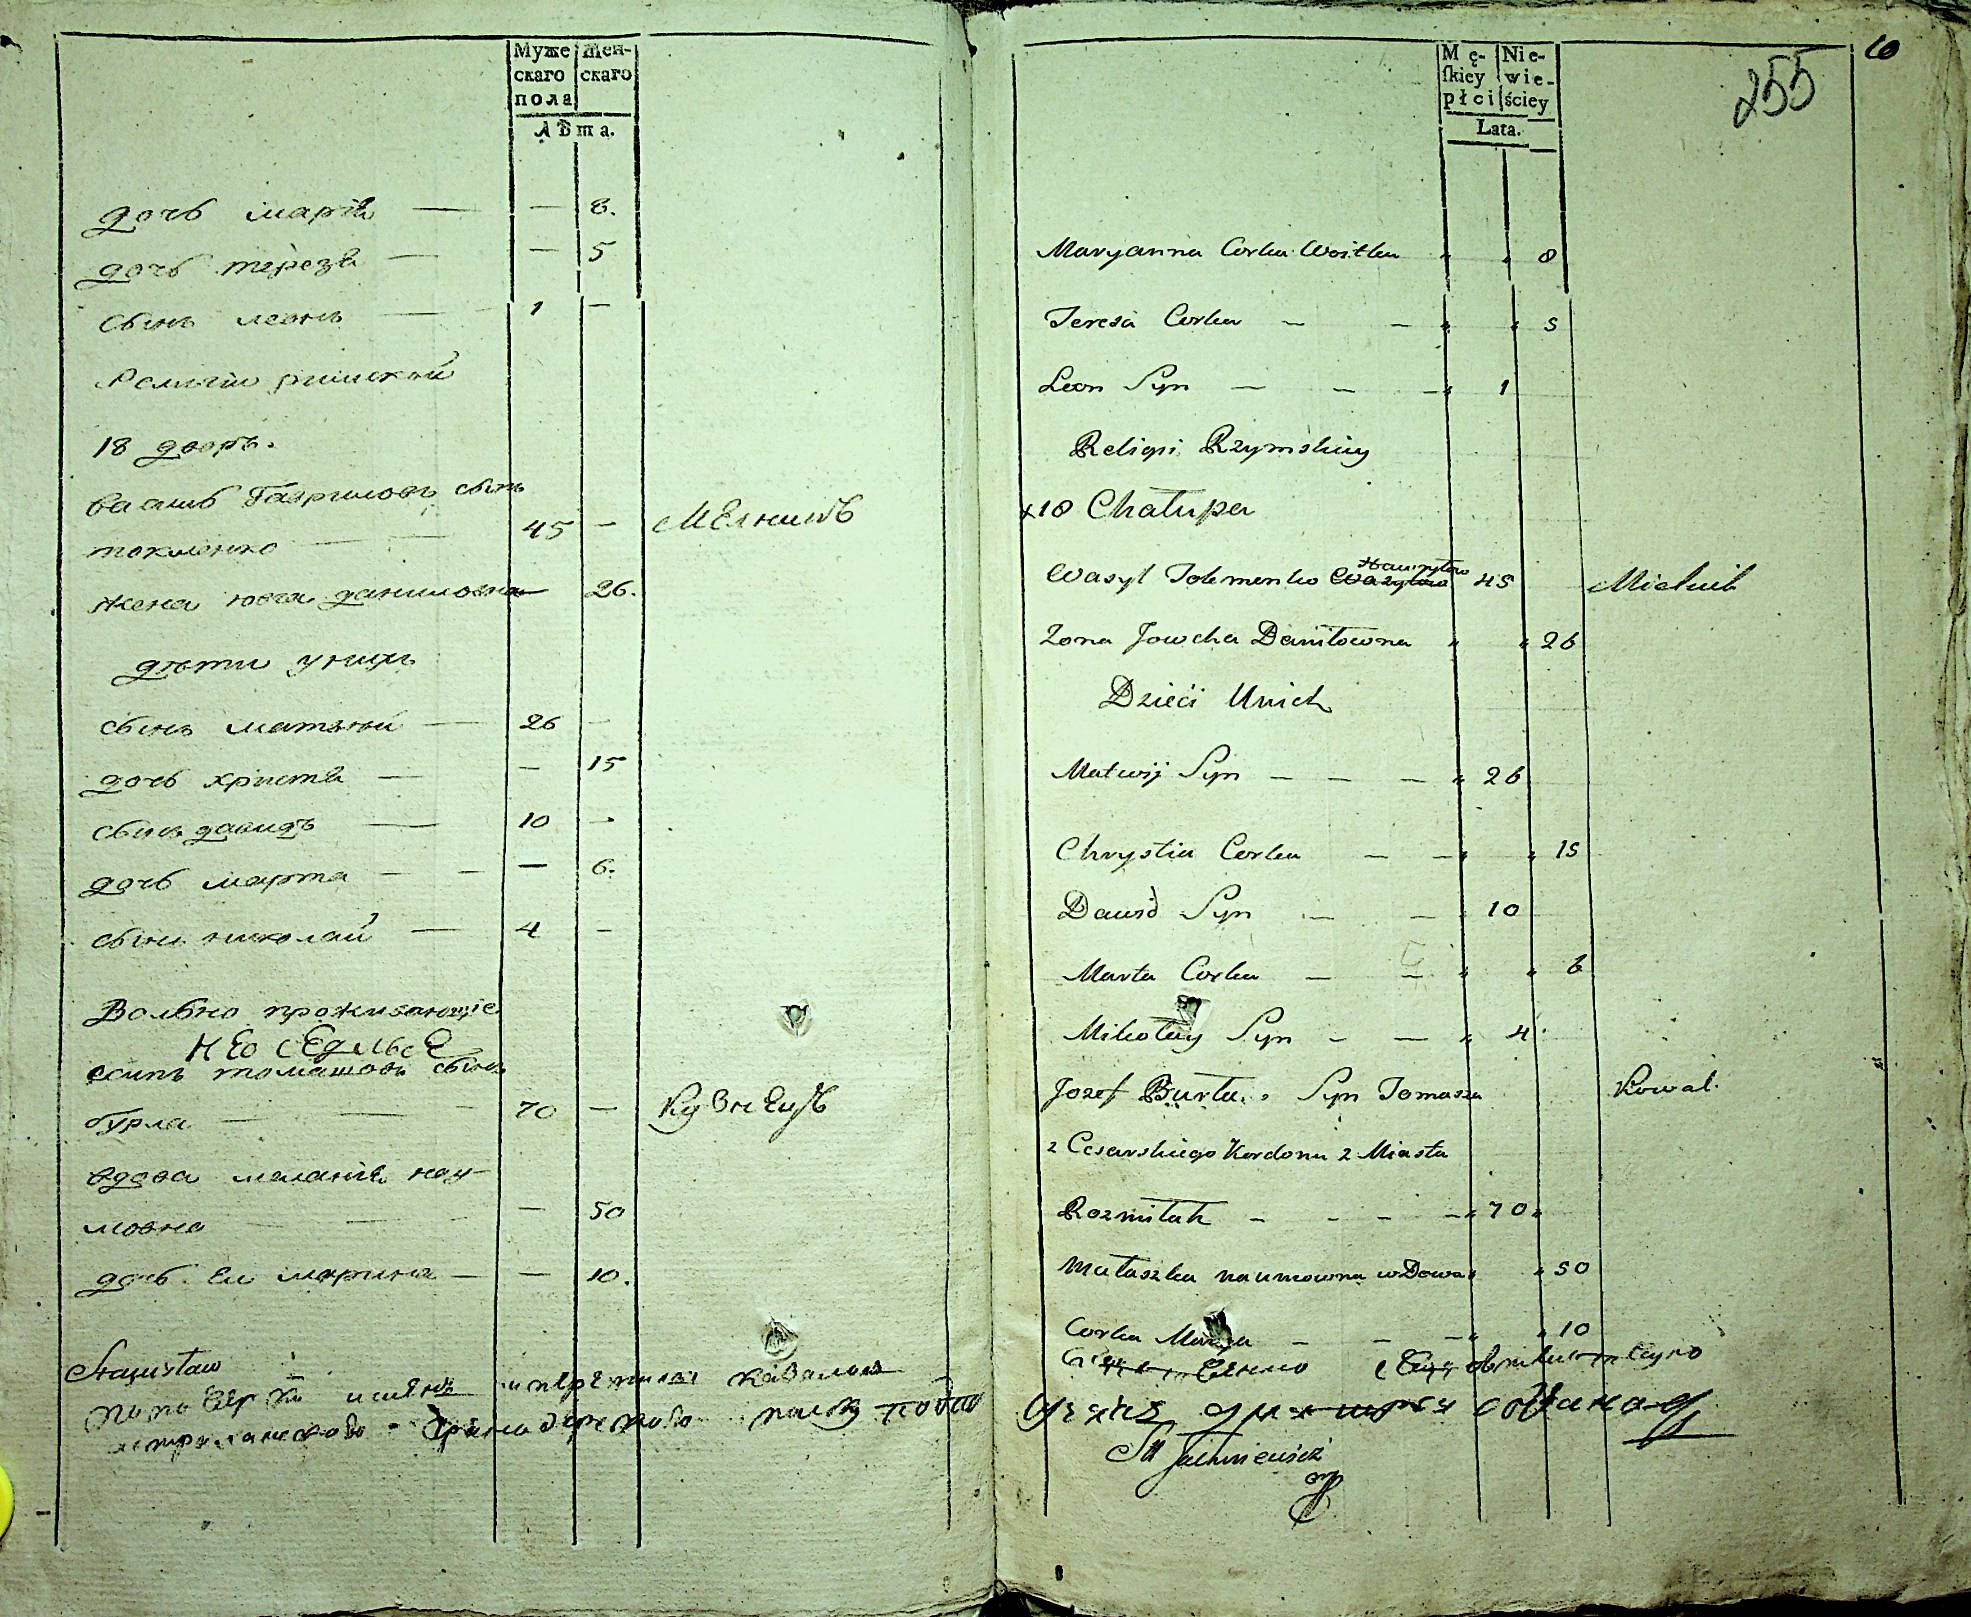 Муже
скаго
пола
Жен-
скаго
Лѣта.
дочь мариꙗ — — 8.
дочь терезꙗ — — 5
сынъ леонъ — 1 —
Религии римской
18 дворъ.
василь Гавриловъ сынъ
токменко — 45 — Мелникъ
жена ювга даниловна — 26.
дѣти унии
сынъ матвѣй — 26 —
дочь христꙗ — — 15
сынъ давидъ — 10 —
дочь марта — — 6.
сынъ николай — 4 —
Вольно проживающие
осипъ томашовъ сынъ
бурла — 70 — Кузнецъ
вдова маланиꙗ нау-
мовна — — 50
дочь еи марина — — 10.
Stanisław
10
255
Mę-
ſkiey
płci
Nie-
wie-
ściey
Lata.
Maryanna Corka Woitka 8
Teresa Corka — — 5
Leon Syn — — 1
Religii Rzymskiey
x 18 Chałupa
Hawryłow
Wasyl Tokmenko Wasylow 45 Mielnik
Zona Jowcha Daniłowna 26
Dzieci Unich
Matwij Syn — — — 26
Chrystia Corka — — 15
Dawid Syn — — 10
Marta Corka — — 6
Mikołay Syn — — 4
Jozef Burła Syn Tomasza Kowal.
z Cesarskiego Kordonu z Miasta
Rozmitak — — — 70
Małaszka naumowna wDowa 50
Corka — — 10